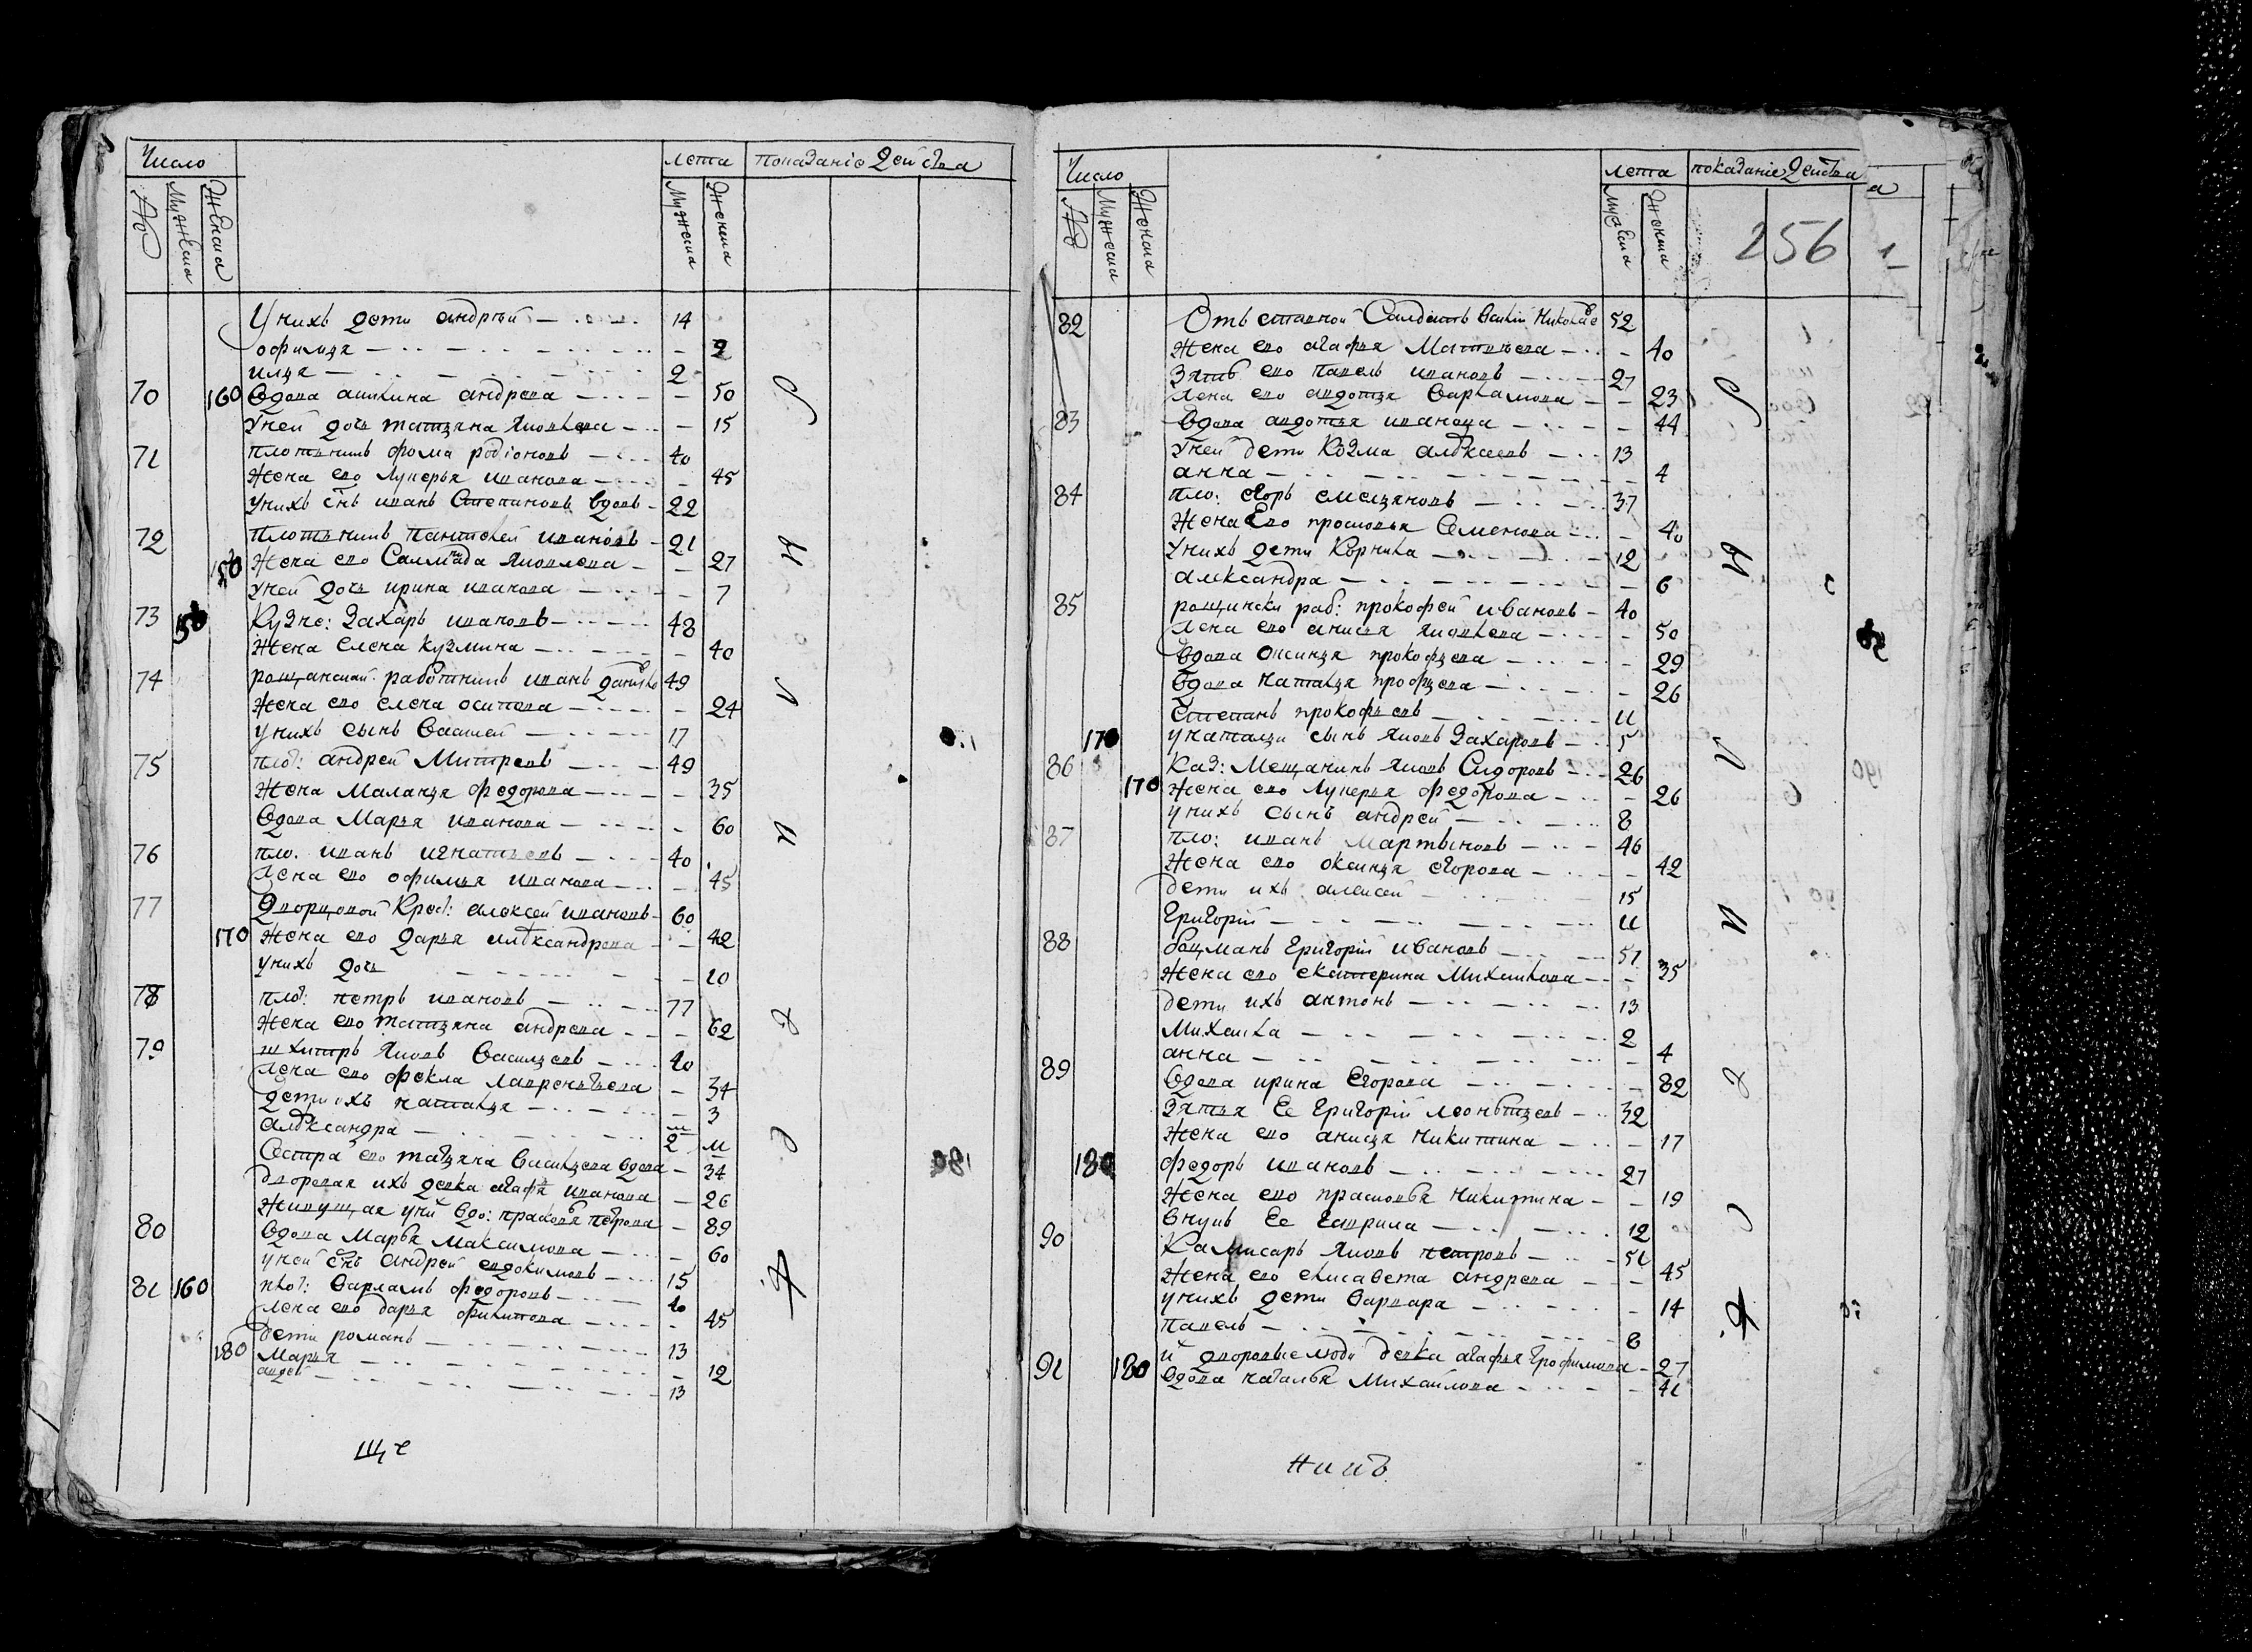 Число
лета
Показаніе Действа
№
Мужеска
Женска
Мужеска
Женска
У нихъ дети андрѣй 14
офимья 2
илья 2
70 160 вдова андрева 50
У ней дочь татьяна 15
71 плотникъ фома родiоновъ 40
жена ево лукерья иванова 45
У нихъ снъ иванъ Степановъ вдовъ 22
72 плотникъ Пантелей ивановъ 21
жена ево Яковлева 27
У ней дочь ирина иванова 7
73 Кузне: Захаръ ивановъ 48
жена елена кузмина 40
74 работникъ иванъ 49
жена ево елена осипова 24
у нихъ сынъ Василей 17
75 пло: андрей Митревъ 49
жена Маланья федорова 35
вдова Марья иванова 60
76 пло. иванъ игнатьевъ 40
жена ево офимья иванова 45
77 Дворцовой Крест: алексей ивановъ 60
170 жена ево Дарья александрова 42
У нихъ дочь 20
78 пло: петръ ивановъ 77
жена ево татьяна андрева 62
79 шхиперъ Яковъ Васильевъ 40
жена ево фекла лаврентьева 34
дети ихъ наталья 3
александра 2
Сестра ево татьяна Васильева вдова 34
дворовая ихъ девка агафья иванова 26
Живущая у ней вдо: прасковья петрова 89
80 вдова Марья Максимова 60
у ней снъ андрей евдокимовъ 15
81 160 пло: Варламъ федоровъ 40
жена ево дарья филипова 45
дети романъ 13
180 Марья 12
13
Число
лета
показаніе Действа
№
Мужеска
Женска
Мужеска
Женска
256
82 Отъставной Салдатъ 52
жена ево агафья Матвеева 40
Зять ево павелъ ивановъ 27
жена ево авдотья Варламова 23
83 вдова авдотья иванова 44
У ней дети Козма алексеевъ 13
анна 4
84 пло: егоръ 37
Жена ево прасковья Семенова 40
У нихъ дети Корнила 12
александра 6
85 раб: прокофей ивановъ 40
жена ево анисья Яковлева 50
вдова оксинья прокофьева 29
вдова наталья 26
Степанъ прокофьевъ 11
170 у натальи сынъ Яковъ Захаровъ 5
86 Каз: Мещанинъ Яковъ Сидоровъ 26
170 жена ево лукерья федорова 26
у нихъ сынъ андрей 8
87 пло: иванъ Мартыновъ 46
Жена ево оксинья егорова 42
дети ихъ алексей 15
григорiй 11
88 боцманъ григорiй ивановъ 51
жена ево екатерина Михаилова 35
дети ихъ антонъ 13
Михаила 2
анна 4
89 вдова ирина егорова 82
Зятья ее григорiй леонтьевъ 32
жена ево анисья никитина 17
180 федоръ ивановъ 27
жена ево прасковья никитина 19
внукъ ее гаврила 12
90 Камисаръ Яковъ петровъ 51
жена ево елисавета андрева 45
у нихъ дети варвара 14
павелъ 8
и дворовые люди девка агафья трофимова 27
91 180 вдова наталья Михаилова 41